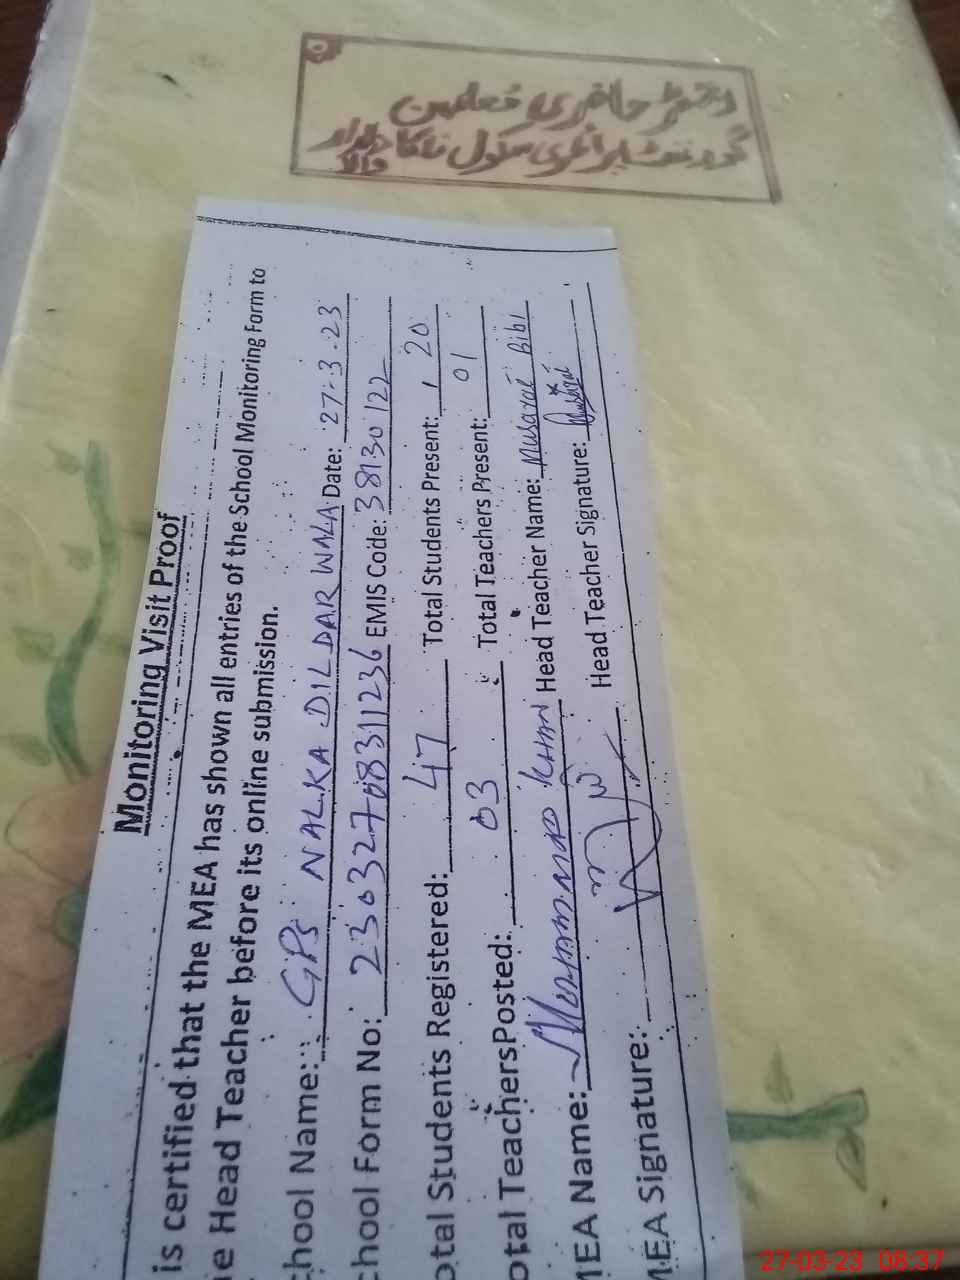 رجسٹر حاضری معلمین
گورنمنٹ پرائمری سکول نلکا دلدار والا
Monitoring Visit Proof
is certified that the MEA has shown all entries of the School Monitoring Form to
e Head Teacher before its online submission.
chool Name: GPS NALKA DILDAR WALA Date: 27-3-23
chool Form No: 23032708311236 EMIS Code: 38130122
otal Students Registered: 47 Total Students Present: 20
otal TeachersPosted: 03 Total Teachers Present: 01
MEA Name: Muhammad KHAN Head Teacher Name: Musarat Bibi
MEA Signature: Head Teacher Signature: Musarat
27-03-23 08:37